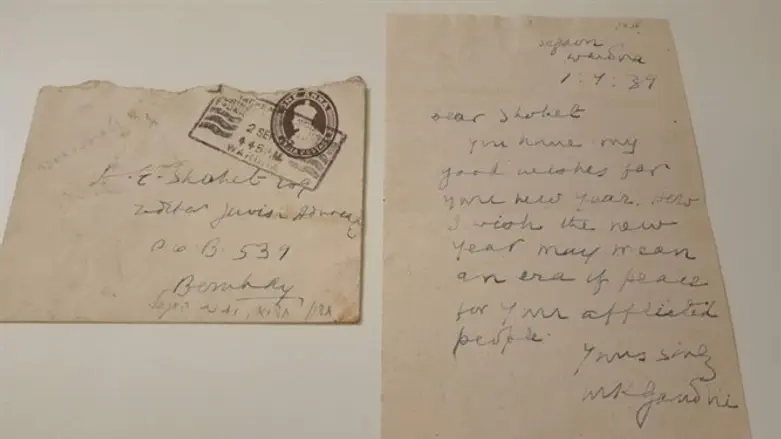 ONE ANNA
2 SEP
4 45 PM
WARDHA
A. E. Shohet Esq
Editor Jewish Advocate
P.O.B. 539
Bombay
Segaon
Wardha
1.9.39
Dear Shohet
You have my
good wishes for
your new year. How
I wish the new
year may mean
an era of peace
for your afflicted
people.
Yours sincly
MKGandhi